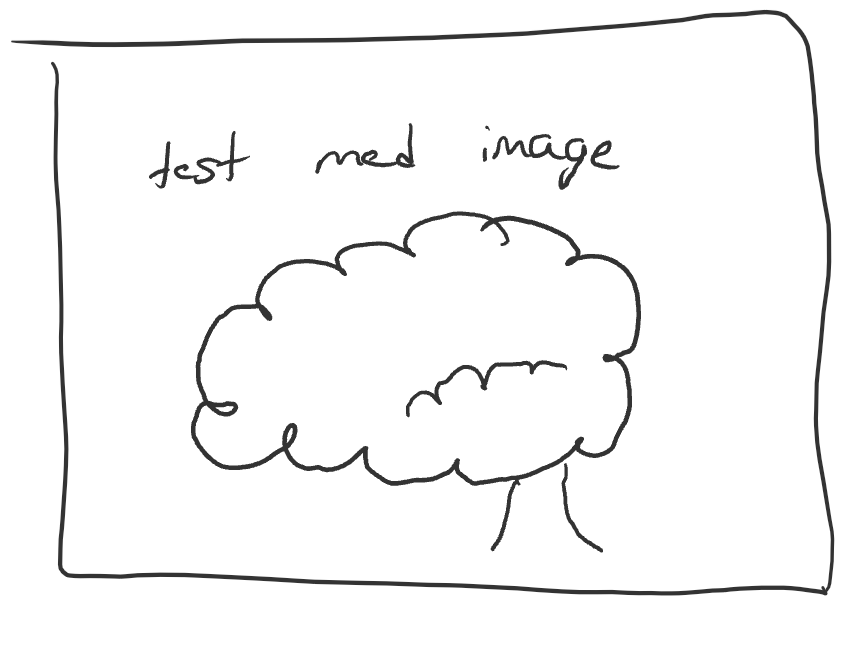 test med image